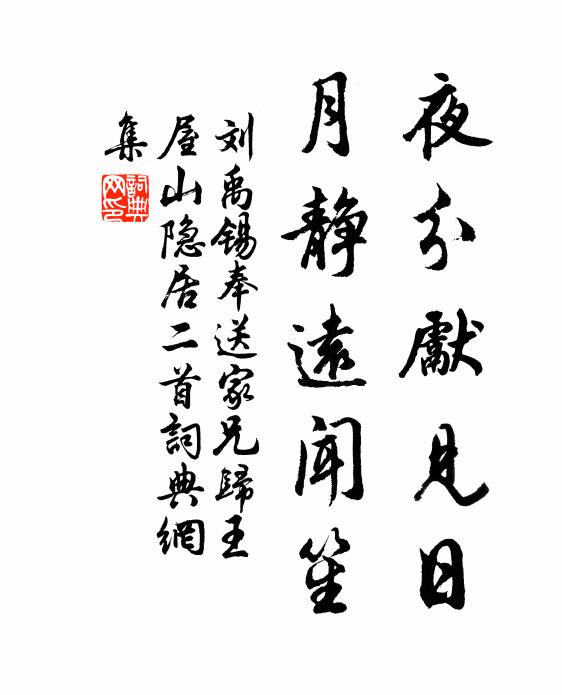 夜分獻見日
月靜遠聞笙
刘禹锡奉送家兄歸王
屋山隐居二首詞典網
集
詞典
网印